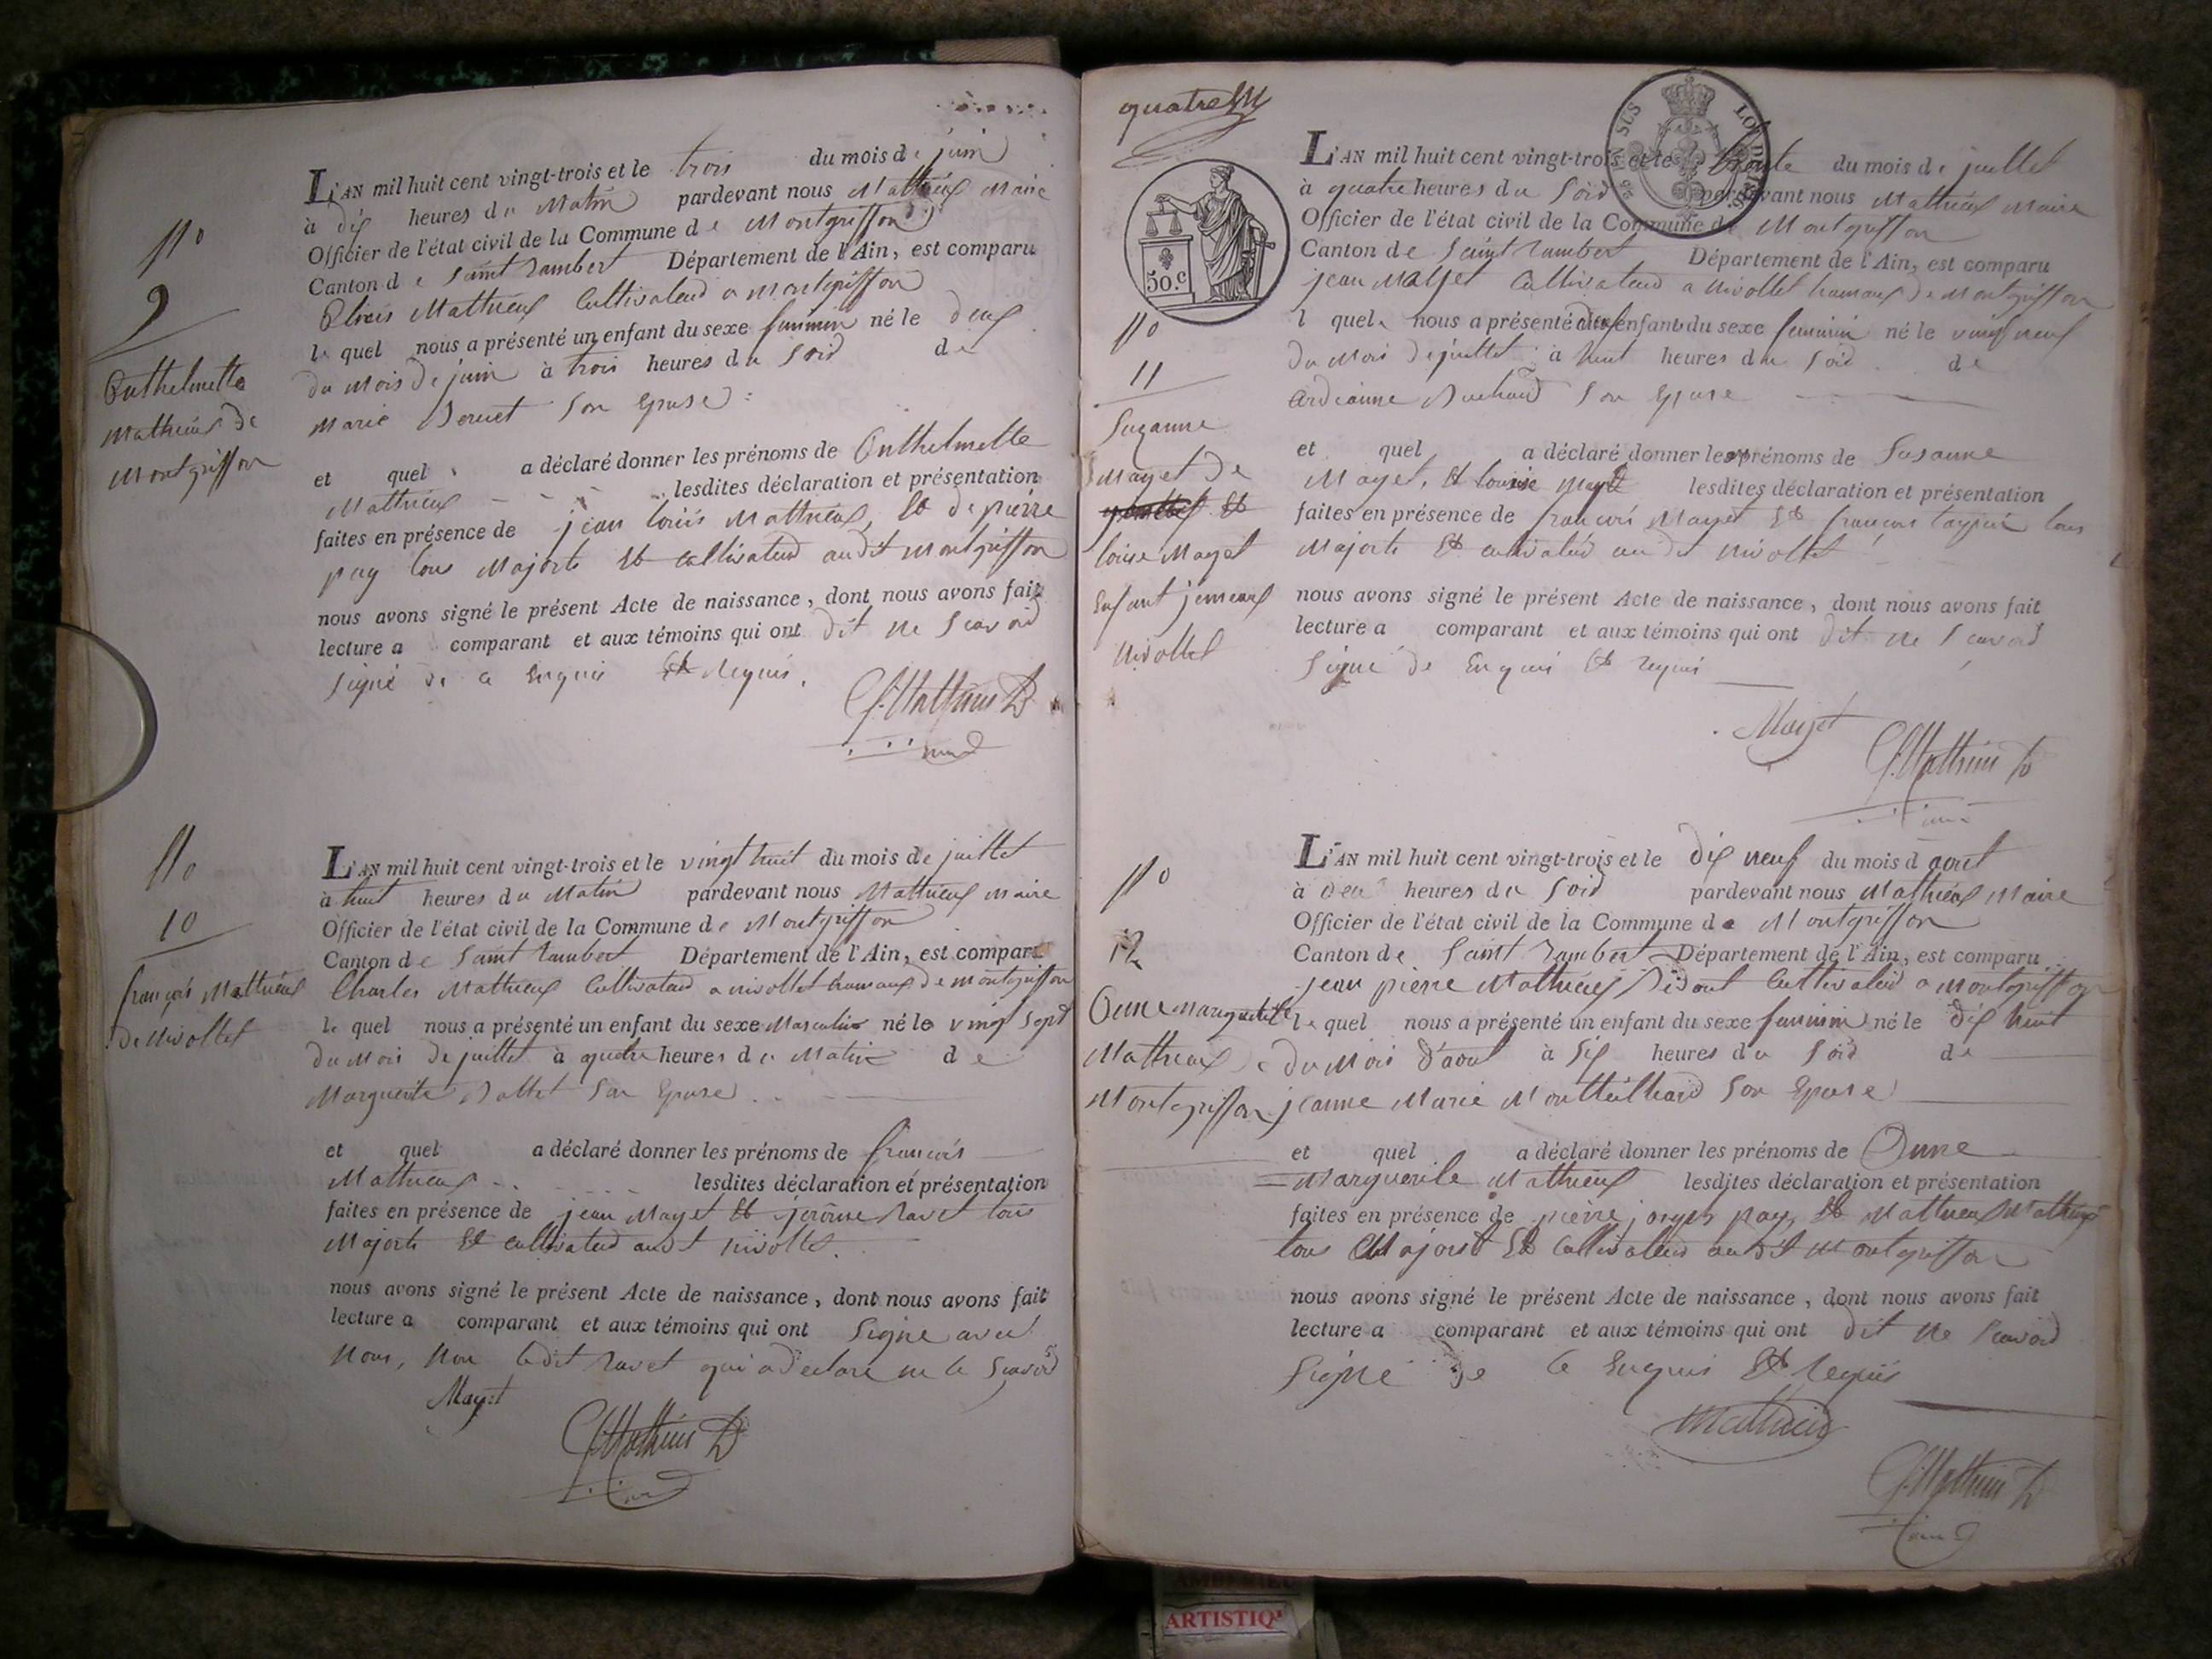 N°
9
Anthelmette
Mathieux de
Montgriffon
L'AN mil huit cent vingt-trois et le trois du mois de juin
à dix heures du Matin pardevant nous Mathieux Maire
Officier de l'état civil de la Commune de Montgriffon
Canton de Saint Rambert Département de l'Ain, est comparu
Mathieux Cultivateur a montgriffon
le quel nous a présenté un enfant du sexe feminin né le deux
du mois de juin à trois heures du Soir de
Marie son Epouse
et quel a déclaré donner les prénoms de Anthelmette
Mathieux lesdites déclaration et présentation
faites en présence de jean louis Mathieux, et de pierre
pay tous Majors et cultivateur audit montgriffon
nous avons signé le présent Acte de naissance, dont nous avons fait
lecture a comparant et aux témoins qui ont dit ne Scavoir
signé de ce Enquis et Requis.
N°
10
françois Mathieux
de Nivollet
L'AN mil huit cent vingt-trois et le vingt huit du mois de juillet
à huit heures du Matin pardevant nous Mathieux Maire
Officier de l'état civil de la Commune de Montgriffon
Canton de Saint Rambert Département de l'Ain, est compar
Charles Mathieux Cultivateur a nivollet hameaux de montgriffon
le quel nous a présenté un enfant du sexe Masculin né le vingt sept
du Mois de juillet à quatre heures du Matin de
Marguerite son Epouse
et quel a déclaré donner les prénoms de francois
Mathieux lesdites déclaration et présentation
faites en présence de jean Mayet et jerôme Ravet tous
Majors et cultivateur audit nivollet.
nous avons signé le présent Acte de naissance, dont nous avons fait
lecture a comparant et aux témoins qui ont Signe avec
Nous, Non ledit Ravet qui a declaré ne le Scavoir
Mayet
quatre
50.C
N°
11
Suzanne
Mayet de
louise Mayet
Enfant jumeaux
Nivollet
L'AN mil huit cent vingt-trois et le trente du mois de juillet
à quatre heures du Soir pardevant nous Mathieux Maire
Officier de l'état civil de la Commune de Montgriffon
Canton de Saint Rambert Département de l'Ain, est comparu
jean Mayet Cultivateur a Nivollet hameaux de Montgriffon
l quel nous a présenté deux enfant du sexe feminin né le vingt neuf
du Mois de juillet à huit heures du Soir de
son Epouse
et quel a déclaré donner les prénoms de Susanne
Mayet, et louise mayet lesdites déclaration et présentation
faites en présence de francois Mayet et francois tous
Majors et cultivateur audit Nivollet
nous avons signé le présent Acte de naissance, dont nous avons fait
lecture a comparant et aux témoins qui ont dit ne Scavoir
Signé de Enquis et requis
Mayet
N°
12
Anne marguerite
Mathieux de
Montgriffon
L'AN mil huit cent vingt-trois et le dix neuf du mois d aout
à deux heures du Soir pardevant nous Mathieux Maire
Officier de l'état civil de la Commune de Montgriffon
Canton de Saint Rambert Département de l'Ain, est comparu
jean pierre Mathieux Cultivateur a Montgriffon
le quel nous a présenté un enfant du sexe feminin né le dix huit
du Mois d'aout à Six heures du Soir de
jeanne Marie Montteilhard son Epouse
et quel a déclaré donner les prénoms de Anne
Marguerite Mathieux lesdites déclaration et présentation
faites en présence de pierre pay, et Mathieux Mathieux
tous Majors et Cultivateur audit Montgriffon
nous avons signé le présent Acte de naissance, dont nous avons fait
lecture a comparant et aux témoins qui ont dit ne Scavoir
Signé de ce Enquis et Requis
Mathieux
ARTISTIQ